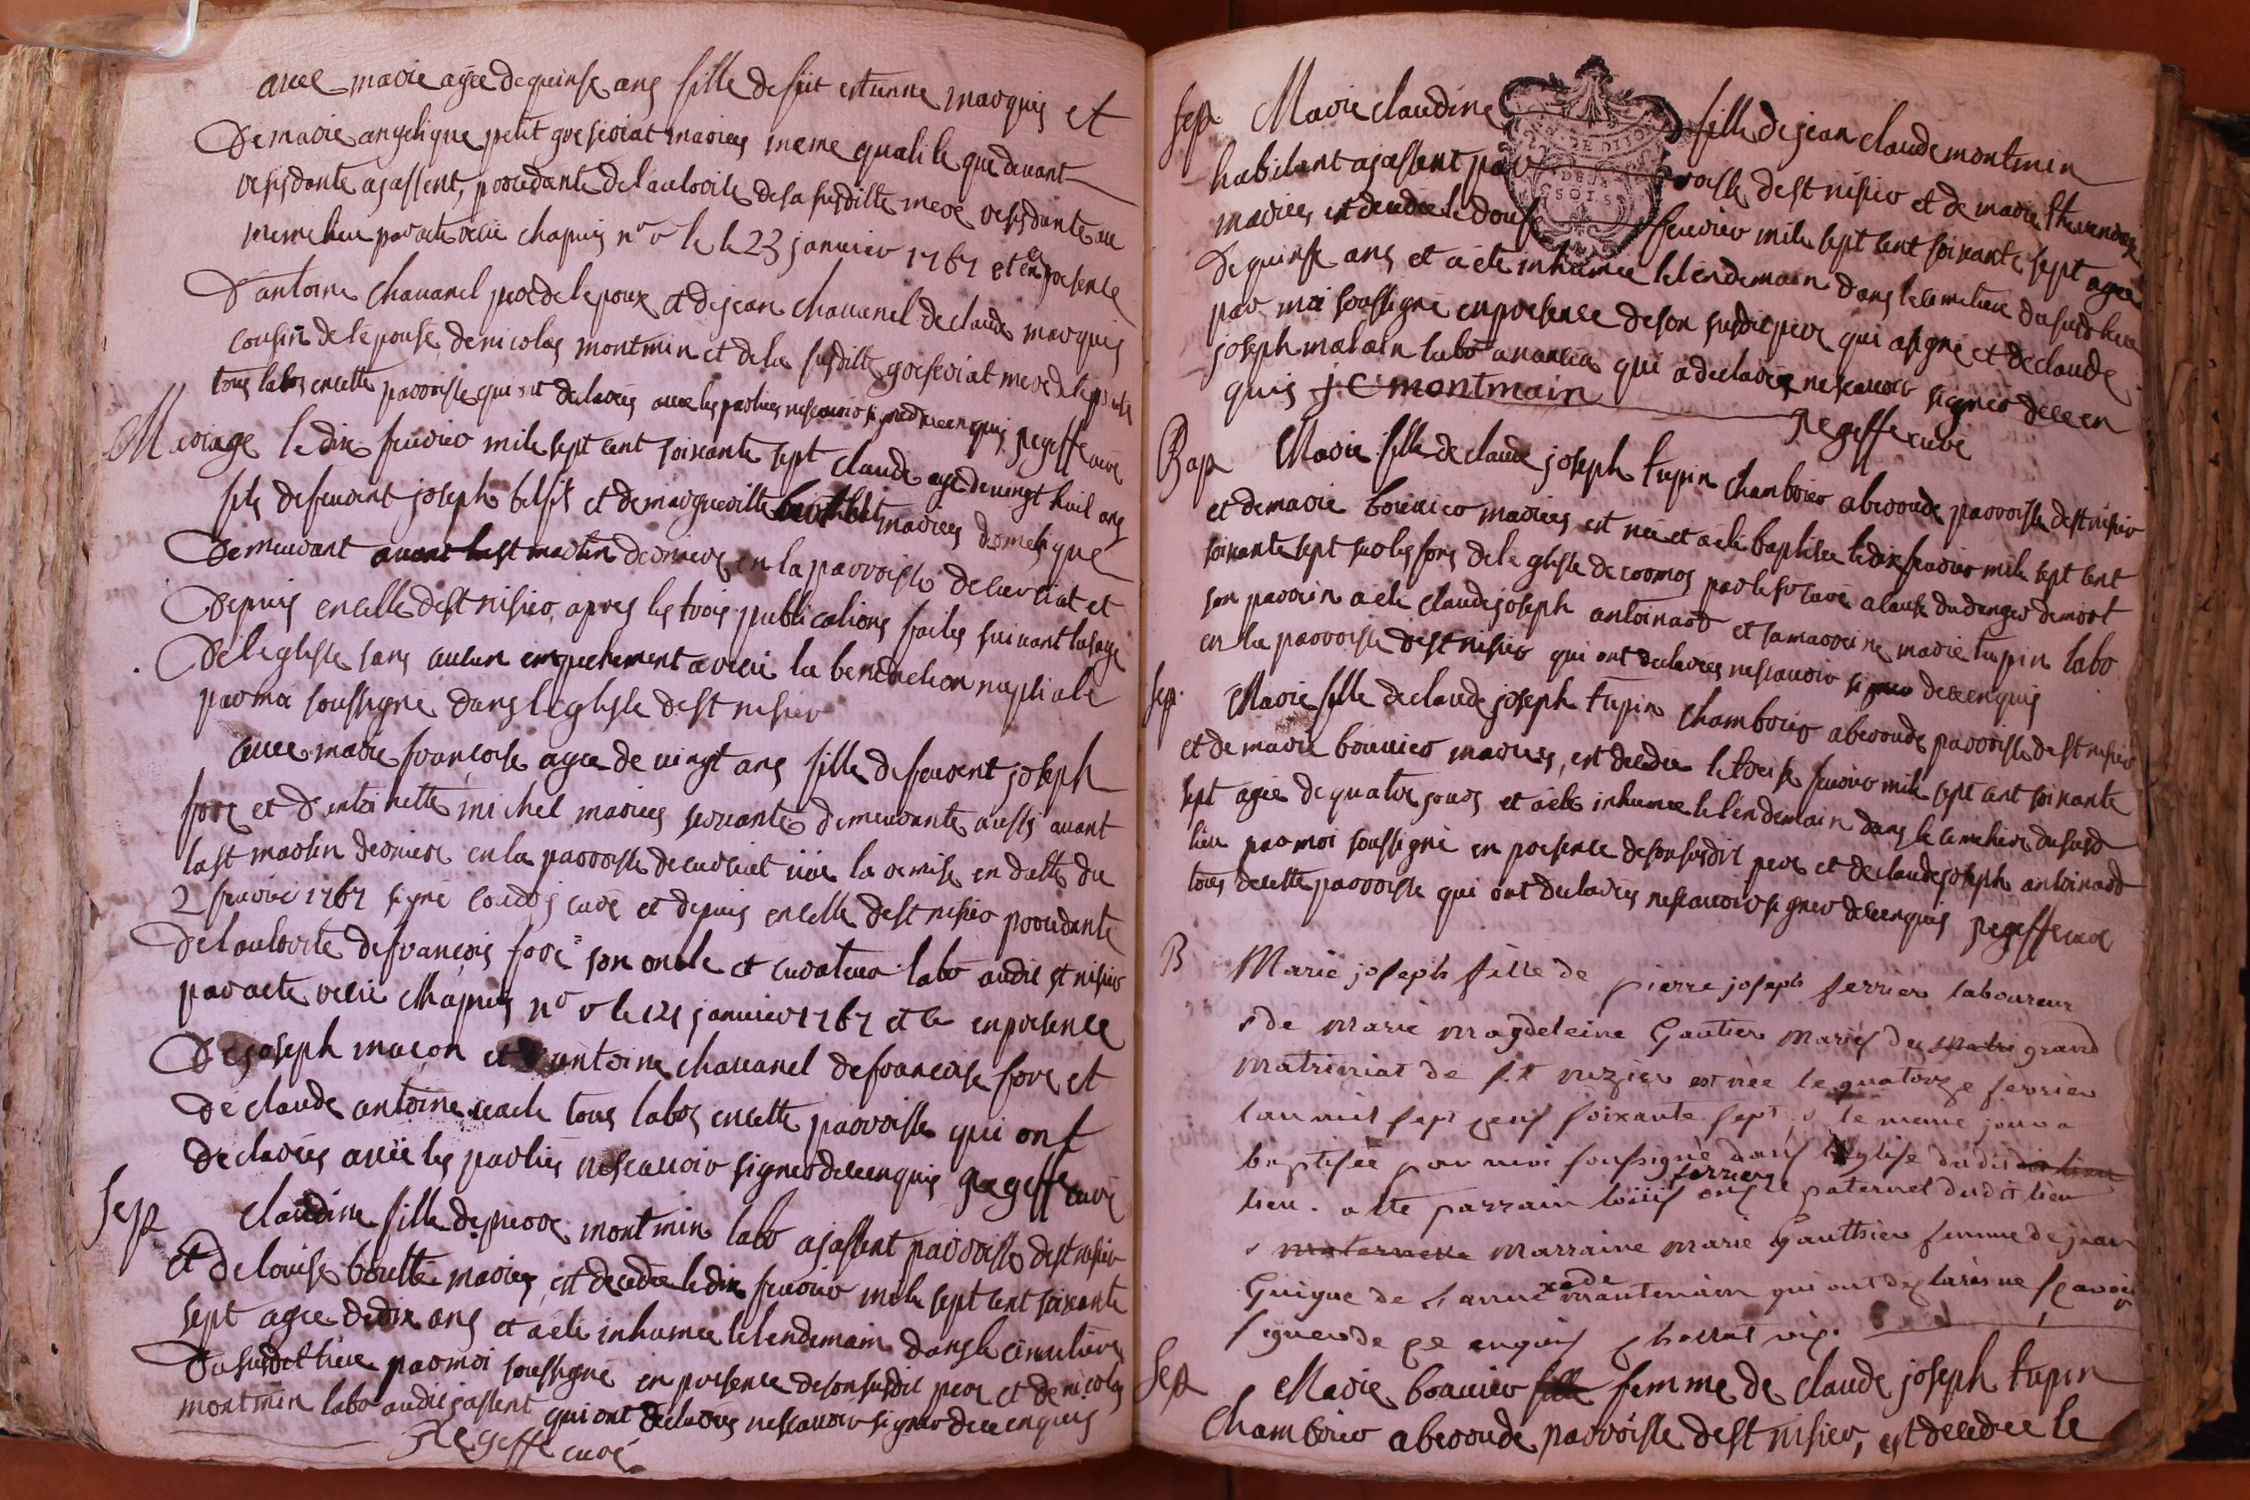 avec marie agée de quinse ans fille de fut estienne marquis et
de marie angelique petit gressiviat mariés meme qualité que devant
residante a jassent, procedante de l'autorité de sa susditte mere residante au
meme lieu par acte recu chapuis nre le 23 janvier 1767 et en presence
d'antoine chavanel pere de lepoux et de jean chavanel de claude marquis
cousin de lepouse de nicolas montmin et de la susditte mere de lepouse
tous labors en cette parroisse qui ont declarés avec les parties nescavoir signer de ce enquis gregeffe curé
Mariage le dix fevrier mile sept cent soixante sept claude agé de vingt huit ans
fils de fevient joseph belfils et de margueritte mariés domestique
demeurant avant la st martin derniere en la parroisse de curciat et
depuis en celle de st nisier, apres les trois publications faites suivant lusage
de leglise sans aucun empechement a reciu la benediction nuptiale
par moi soussigné dans leglise de st nisier
avec marie francoise agée de vingt ans fille de fevent joseph
fore et d'entoinette michel mariés servante demeurante aussi avant
la st martin derniere en la parroisse de curciat vüe la remise en datte du
2 fevrier 1767 signé curé et depuis en celle de st nisier procedante
de lautorité de francois fore son oncle et curateur labo audit st nisier
par acte reciu chapuis nre le 21 janvier 1767 et le en presence
de joseph macon et d'antoine chavanel de francoise fore et
de claude antoine tous labors en cette parroisse qui ont
declarés avec les parties nescavoir signer de ce enquis gregeffe curé
Sep claudine fille de pierre montmin labo a jassent parroisse de st nisier
et de louise mariés, est decedée le dix fevrier mile sept cent soixante
sept agée de dix ans et a été inhumée le lendemain dans le cimetiere
du susdit lieu par moi soussigné en presence de son susdit pere et de nicolas
montmin labo audit jassent qui ont declarés nescavoir signer de ce enquis
gregeffe curé
Sep Marie claudine fille de jean claude montmin
habitant a jassent parroisse de st nisier et de marie thevenard
mariés, est decedée le douse fevrier mile sept cent soixante sept agée
de quinse ans et a été inhumée le lendemain dans le cimetiere du susd lieu
par moi soussigné en presence de son susdit pere qui a signé et de claude
joseph malain labo a qui a declaré nescavoir signer de ce en
quis j C montmain gregeffe curé
Bap Marie fille de claude joseph tupin chambrier a beroude parroisse de st nisier
et de marie bouvier mariés est née et a été baptisée le dix fevrier mile sept cent
soixante sept sur les fons de leglise de cormos par le sr curé a cause du danger de mort
son parrain a été claude joseph antoinard et sa marreine marie tupin labo
en la parroisse de st nisier qui ont declarés nescavoir signer de ce enquis
Sep. Marie fille de claude joseph tupin chambrier a beroude parroisse de st nisier
et de marie bouvier mariés, est decedée le treise fevrier mile sept cent soixante
sept agée de quatre jours et a été inhumée le lendemain dans le cimetiere du susd
lieu par moi soussigné en presence de son susdit pere et de claude joseph antoinard
tous de cette parroisse qui ont declarés nescavoir signer de ce enquis gregeffe curé
B Marie joseph fille de pierre joseph ferrier laboureur
& de marie magdeleine Gautier mariés du grand
matrinjat de s.t nizier est née le quatorze fevrier
l'an mil sept cent soixante sept & le meme jour a
baptisée par moi soussigné dans l'eglise dudit lieu
ferrier
lieu. a été parrain loüis oncle paternel dudit lieu
& maternelle marraine marie Gauthier femme de jean
Guigue de mantenain qui ont declarés ne scavoir
signer de ce enquis
Sep Marie bouvier fille femme de claude joseph tupin
chambrier a beroude parroisse de st nisier, est decedée le